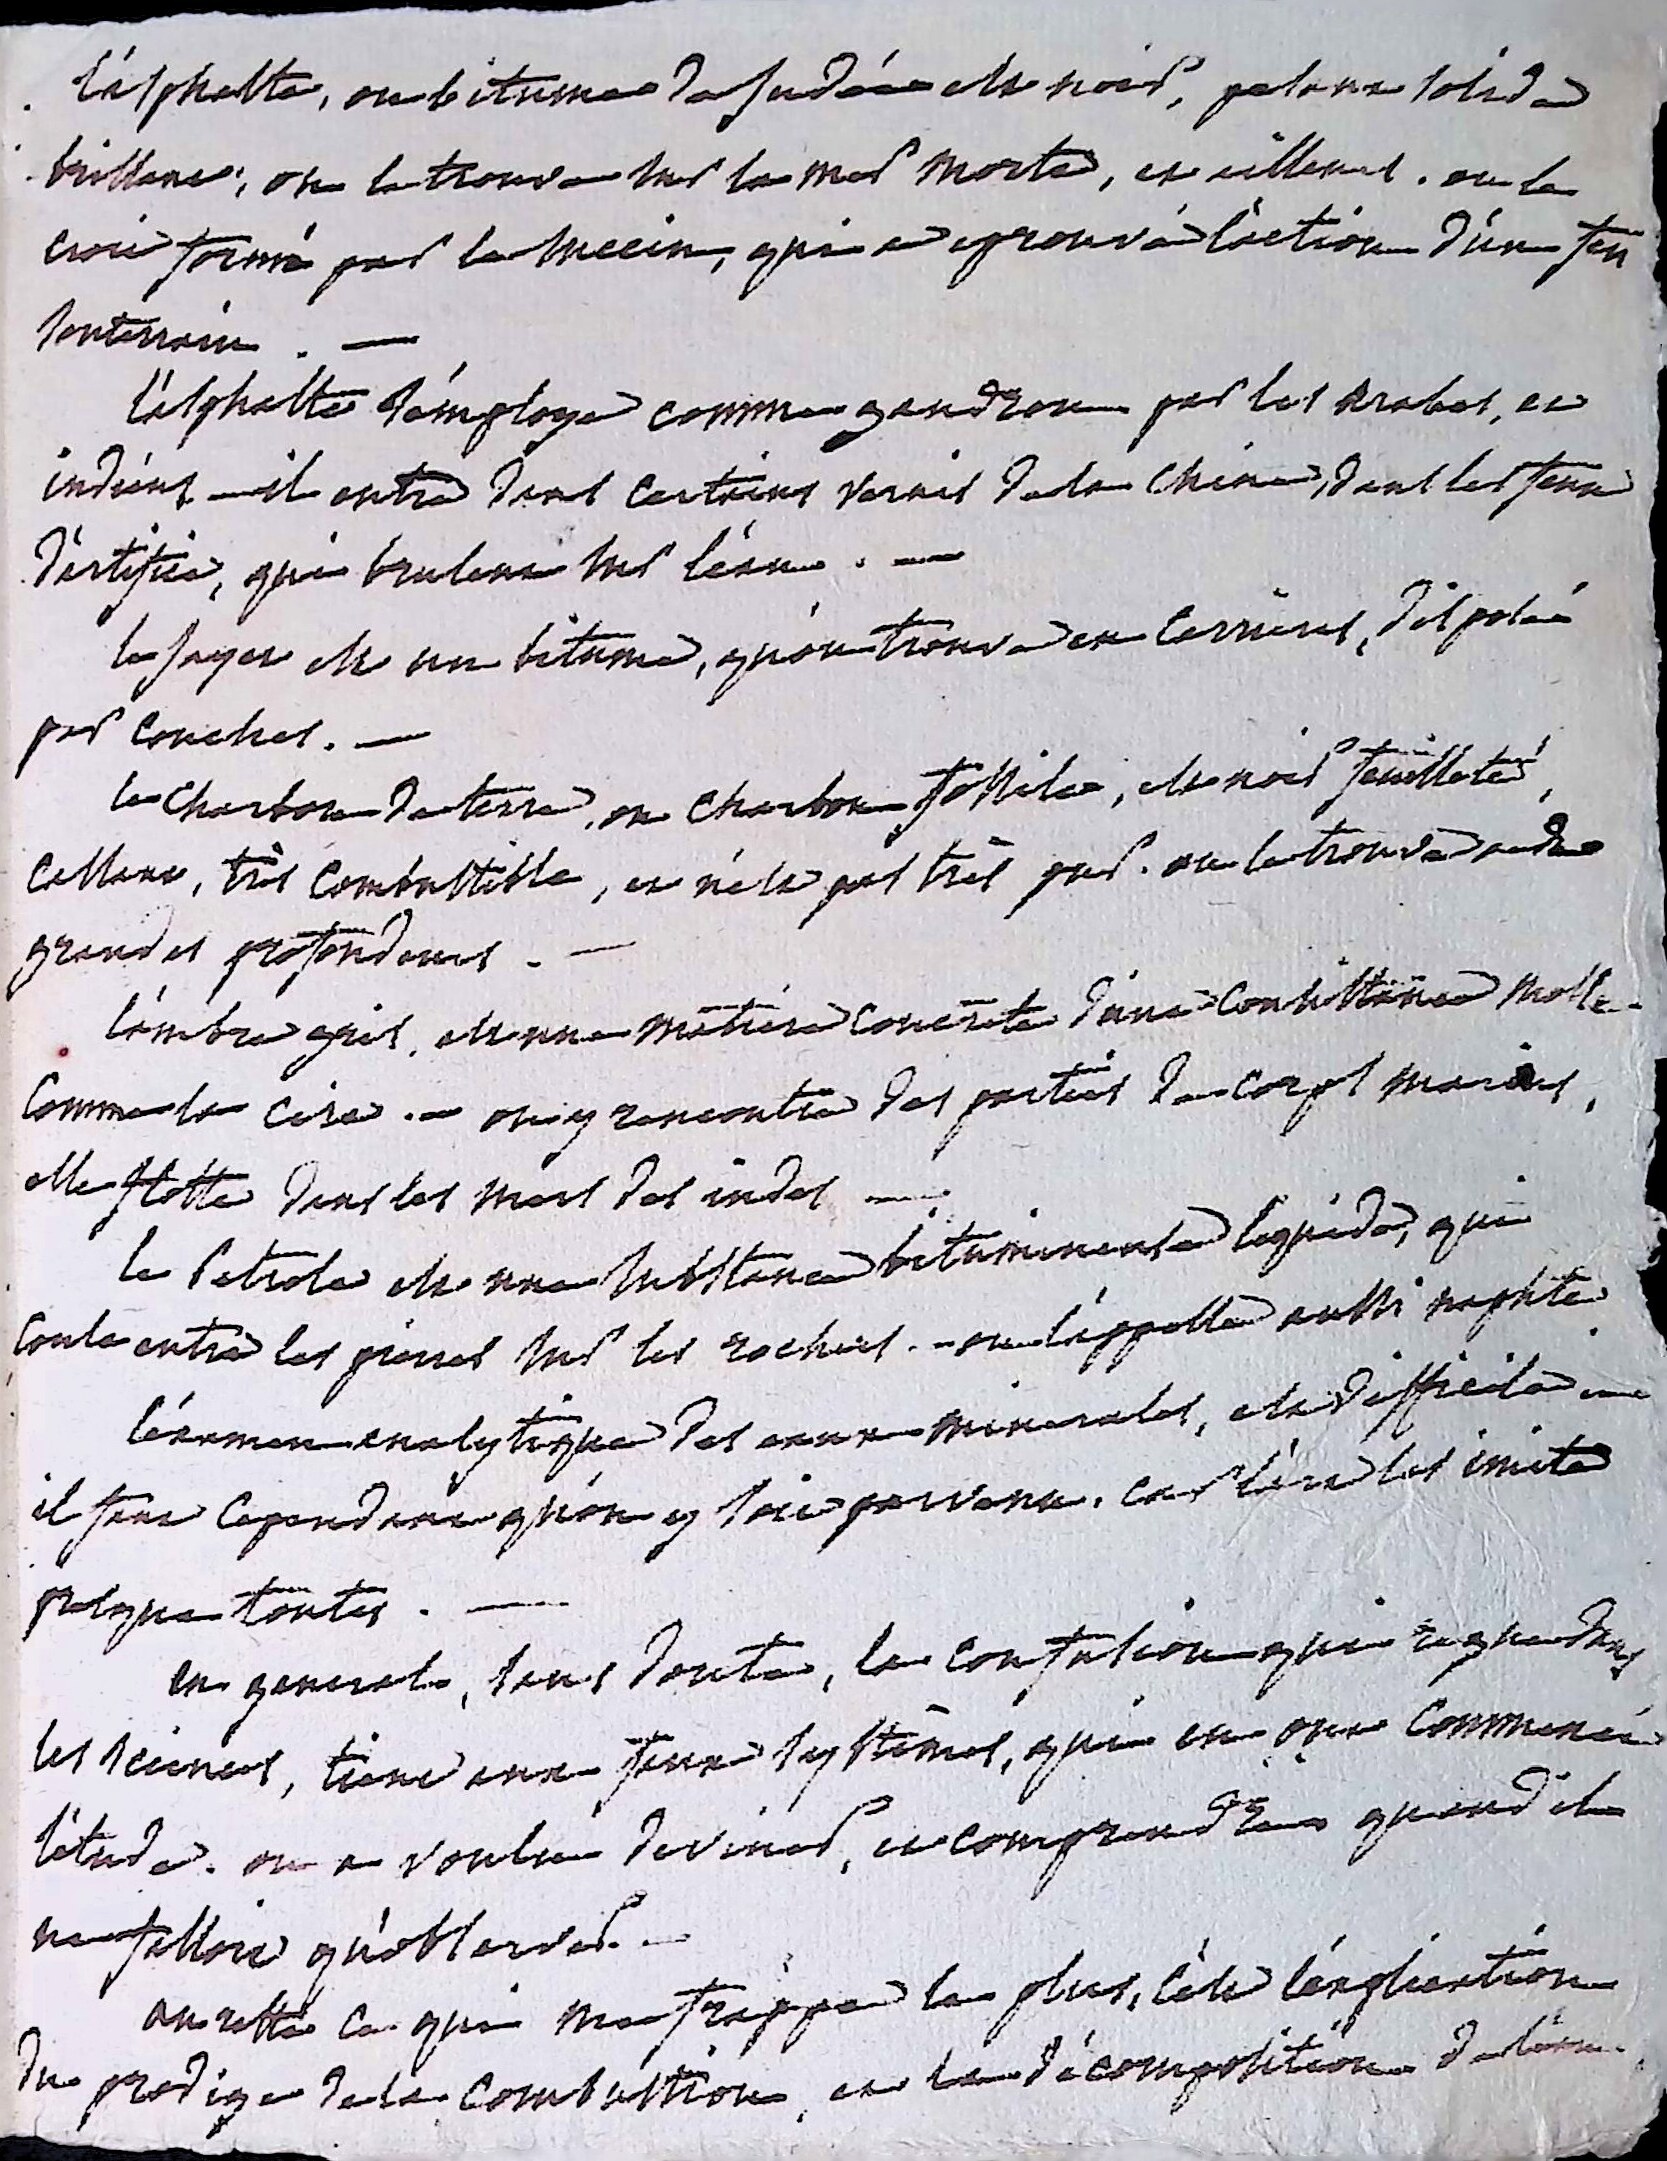 l'asphalte, ou bitume de Judée est noir, pesant solide
brillant, on le trouve sur la mer morte, et ailleurs. on le
croit formé par le succin, qui a eprouvé l'action d'un feu
souterrain. —
l'asphalte s'employe comme goudron par les arabes, et
indiens — il entre dans certains vernis de la Chine, dans les feux
d'artifice, qui brulent sur l'eau. —
le jayet est un bitume, qu'on trouve en carrieres, disposé
par couches. —
le Charbon de terre, ou charbon fossile, est noir feuilleté,
cassant, très combustible, et n'est pas très pur. on le trouve a de
grandes profondeurs. —
l'ambre gris, est une matiere concrete d'une consistance molle
comme la cire. — on y rencontre des parties de corps marins,
elle flotte dans les mers des indes —
le Petrole est une substance bitumineuse liquide, qui
coule entre les pierres sur les rochers. — on l'appelle aussi naphte.
l'examen analytique des eaux minerales, est difficile —
il faut cependant qu'on y soit parvenu. car l'art les imite
presque toutes. —
en general, sans doute, la confusion qui regne dans
les sciences, tient aux faux systêmes, qui en ont commencé
l'etude. on a voulu deviner, et comprendre quand il
ne falloit qu'observer. —
au reste ce qui me frappe le plus, c'est l'explication
du prodige de la combustion, et la décomposition de l'eau